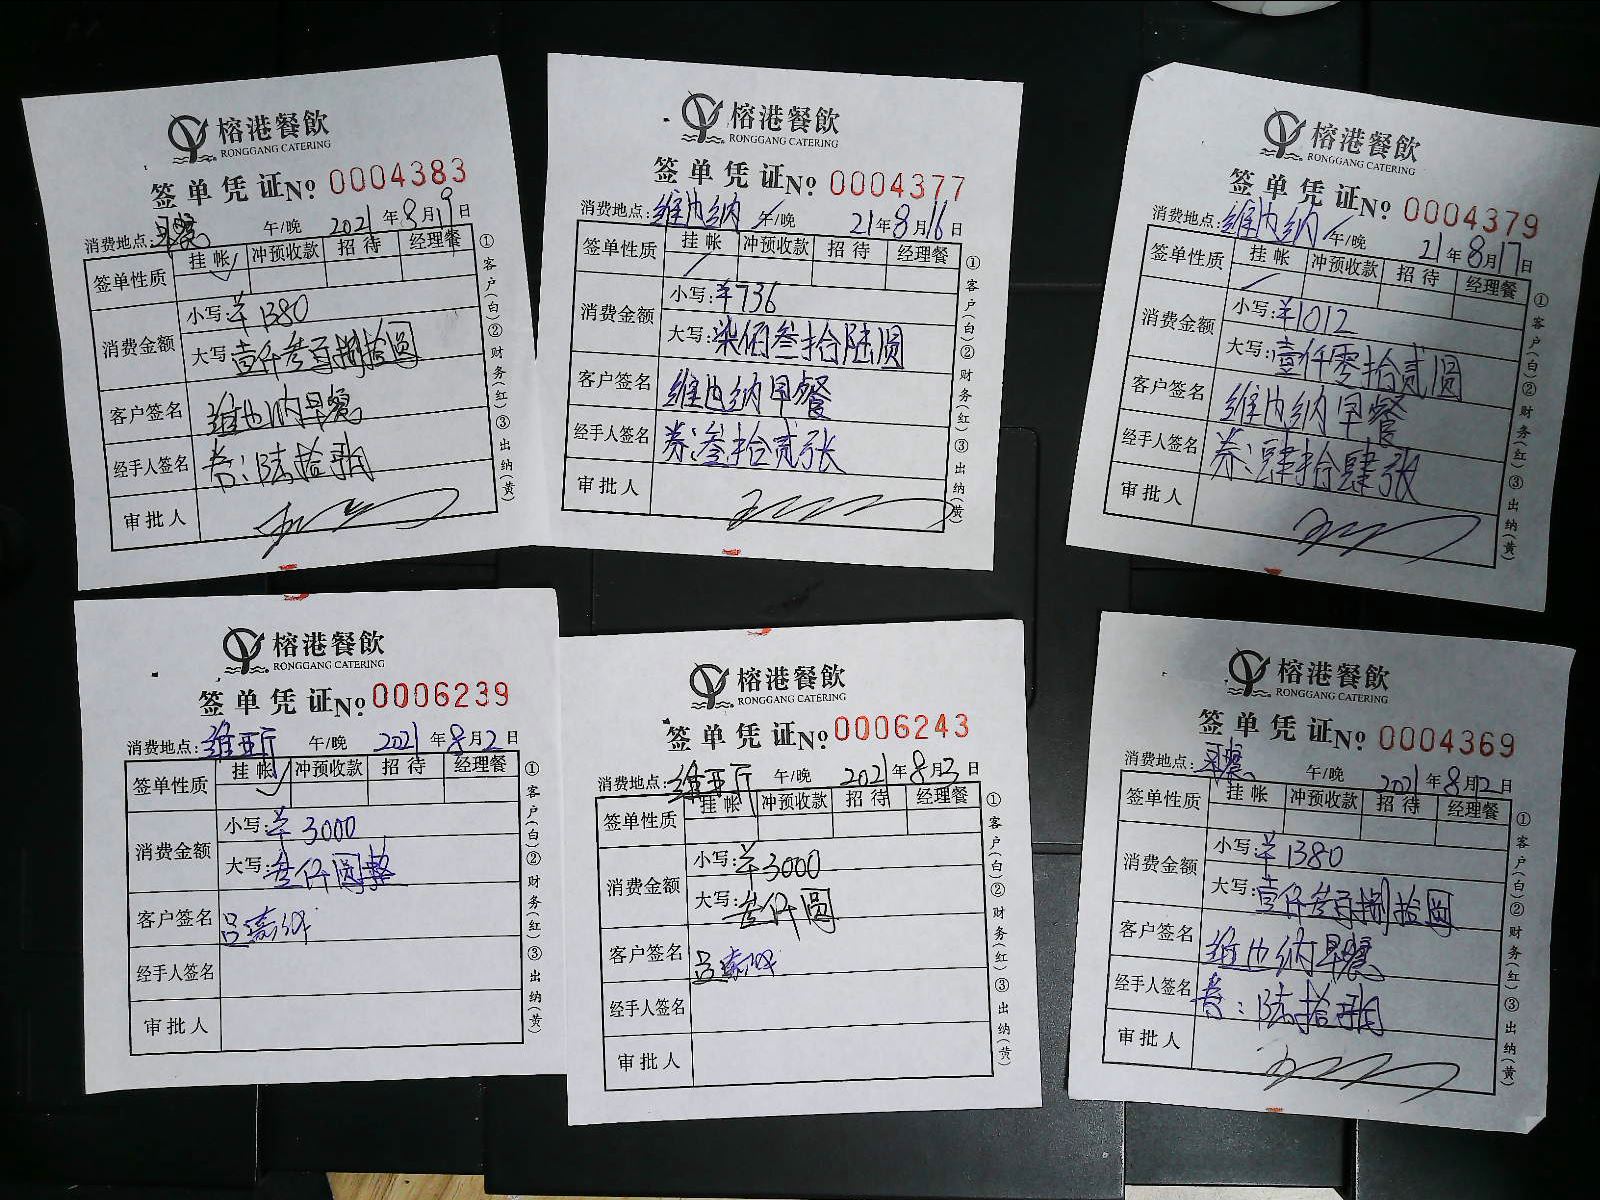 榕港餐飲
RONGGANG CATERING
签单凭证№ 0004383
消费地点：早餐 午/晚 2021年8月19日
签单性质 挂帐 冲预收款 招待 经理餐
消费金额 小写：¥1380
大写：壹仟叁百捌拾圆
客户签名 维也纳早餐
经手人签名 券：陆拾张
审批人
①客户(白)②财务(红)③出纳(黄)
榕港餐飲
RONGGANG CATERING
签单凭证№ 0004377
消费地点：维也纳 午/晚 21年8月16日
签单性质 挂帐 冲预收款 招待 经理餐
消费金额 小写：¥736
大写：柒佰叁拾陆圆
客户签名 维也纳早餐
经手人签名 券：叁拾贰张
审批人
①客户(白)②财务(红)③出纳(黄)
榕港餐飲
RONGGANG CATERING
签单凭证№ 0004379
消费地点：维也纳 午/晚 21年8月17日
签单性质 挂帐 冲预收款 招待 经理餐
消费金额 小写：¥1012
大写：壹仟零拾贰圆
客户签名 维也纳早餐
经手人签名 券：肆拾肆张
审批人
①客户(白)②财务(红)③出纳(黄)
榕港餐飲
RONGGANG CATERING
签单凭证№ 0006239
消费地点：维亚厅 午/晚 2021年8月2日
签单性质 挂帐 冲预收款 招待 经理餐
消费金额 小写：¥3000
大写：叁仟圆整
客户签名
经手人签名
审批人
①客户(白)②财务(红)③出纳(黄)
榕港餐飲
RONGGANG CATERING
签单凭证№ 0006243
消费地点：维亚厅 午/晚 2021年8月3日
签单性质 挂帐 冲预收款 招待 经理餐
消费金额 小写：¥3000
大写：叁仟圆
客户签名
经手人签名
审批人
①客户(白)②财务(红)③出纳(黄)
榕港餐飲
RONGGANG CATERING
签单凭证№ 0004369
消费地点：早餐 午/晚 2021年8月12日
签单性质 挂帐 冲预收款 招待 经理餐
消费金额 小写：¥1380
大写：壹仟叁百捌拾圆
客户签名 维也纳早餐
经手人签名 券：陆拾张
审批人
①客户(白)②财务(红)③出纳(黄)